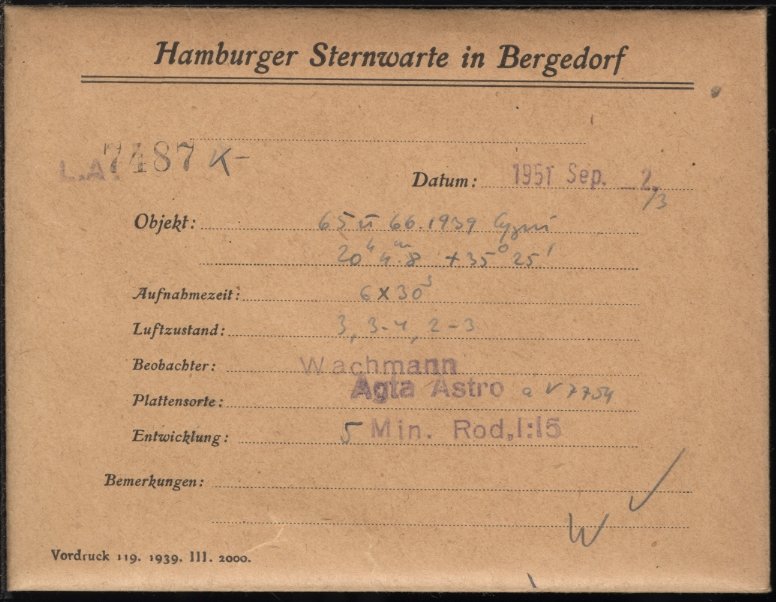 Hamburger Sternwarte in Bergedorf
L.A. 7487 K-
Datum: 1951 Sep. 2/3
Objekt: 65 u 66.1939 Cygni
20h 4m.8 +35° 25'
Aufnahmezeit: 6x30s
Luftzustand: 3, 3-4, 2-3
Beobachter: Wachmann
Plattensorte: Agfa Astro a V 7754
Entwicklung: 5 Min. Rod,1:15
Bemerkungen:
W
Vordruck 119. 1939. III. 2000.